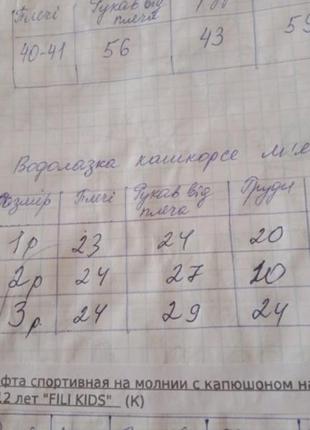 Плечі Рукав від плеча
40-41 56 43 59
Водолазка кашкорсе м'я
Розмір Плечі Рукав від плеча Груди
1р 23 24 20
2р 24 27 20
3р 24 29 24
фта спортивная на молнии с капюшоном на
12 лет "FILI KIDS" (К)